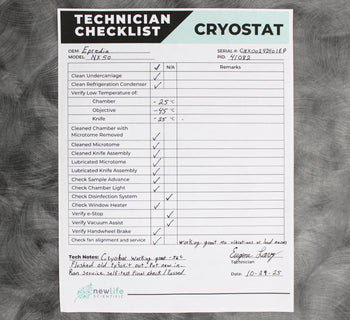 TECHNICIAN
CHECKLIST
CRYOSTAT
OEM: Epredia
MODEL: NX 50
SERIAL #:
PID: 41082
✓ N/A Remarks
Clean Undercarriage ✓
Clean Refrigeration Condenser ✓
Verify Low Temperature of:
Chamber -25 °C
Objective -45 °C
Knife -25 °C
Cleaned Chamber with
Microtome Removed ✓
Cleaned Microtome ✓
Cleaned Knife Assembly ✓
Lubricated Microtome ✓
Lubricated Knife Assembly ✓
Check Sample Advance ✓
Check Chamber Light ✓
Check Disinfection System ✓
Check Window Heater ✓
Verify e-Stop ✓
Verify Vacuum Assist ✓
Verify Handwheel Brake ✓
Check fan alignment and service ✓ Working great no vibrations or bad noises
Tech Notes: Cryobar working great
Flushed old out. Put new in.
Ran Service self-test final check / Passed
Technician
Date: 10-29-25
newlife
SCIENTIFIC